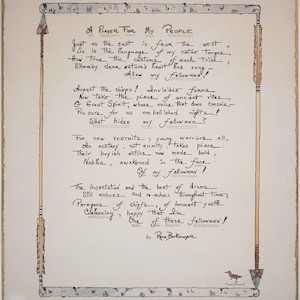 A Prayer For My People
Just as the east is from the west,
So is the language of my native tongue
How true the customs of each tribe,
nature's fruit
Allow my fellowmen!
Accept the chiefs! Invisible forms
Now take the place of ancient rites
O Great Spirit, whose voice that does console
Procure for us an embellished night
What hides my fellowmen!
For new recruits, young warriors all,
An ecstasy, not enmity takes place
Their boyish antics now made bold,
Nobler, awakened in the face
Of my fellowmen!
The incantation and the beat of drums
Still echoes and re-echoes throughout time,
Paragons of chiefs, of innocent youth
Cleansing, happy that I'm
One of these fellowmen!
by